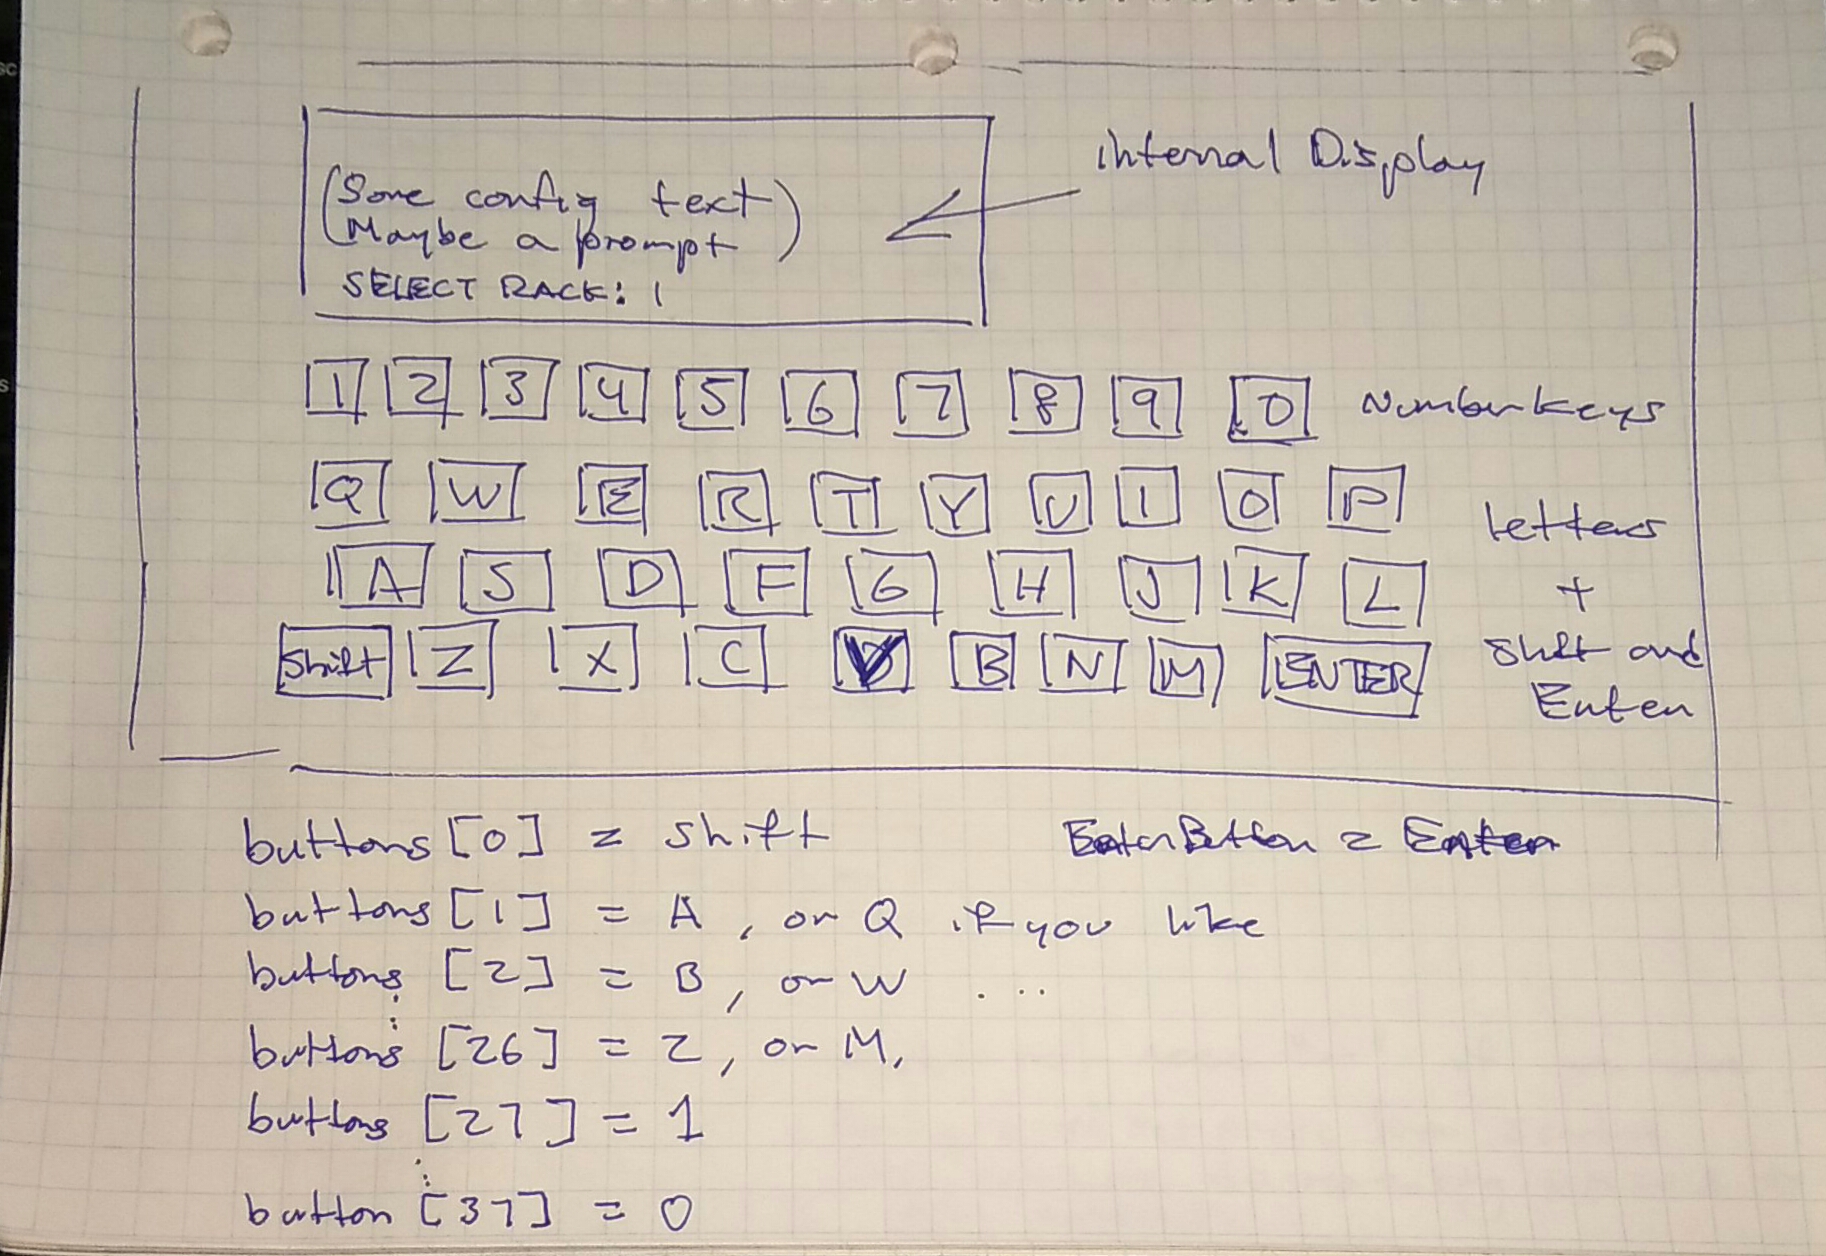 (Some config text)
(Maybe a prompt)
SELECT RACK: 1
internal Display
1 2 3 4 5 6 7 8 9 0 Number keys
Q W E R T Y U I O P
A S D F G H J K L
Shift Z X C V B N M ENTER
letters
+
Shift and
Enter
buttons [0] = shift EnterButton = Enter
buttons [1] = A, or Q if you like
buttons [2] = B, or W ...
buttons [26] = Z, or M,
buttons [27] = 1
button [37] = 0